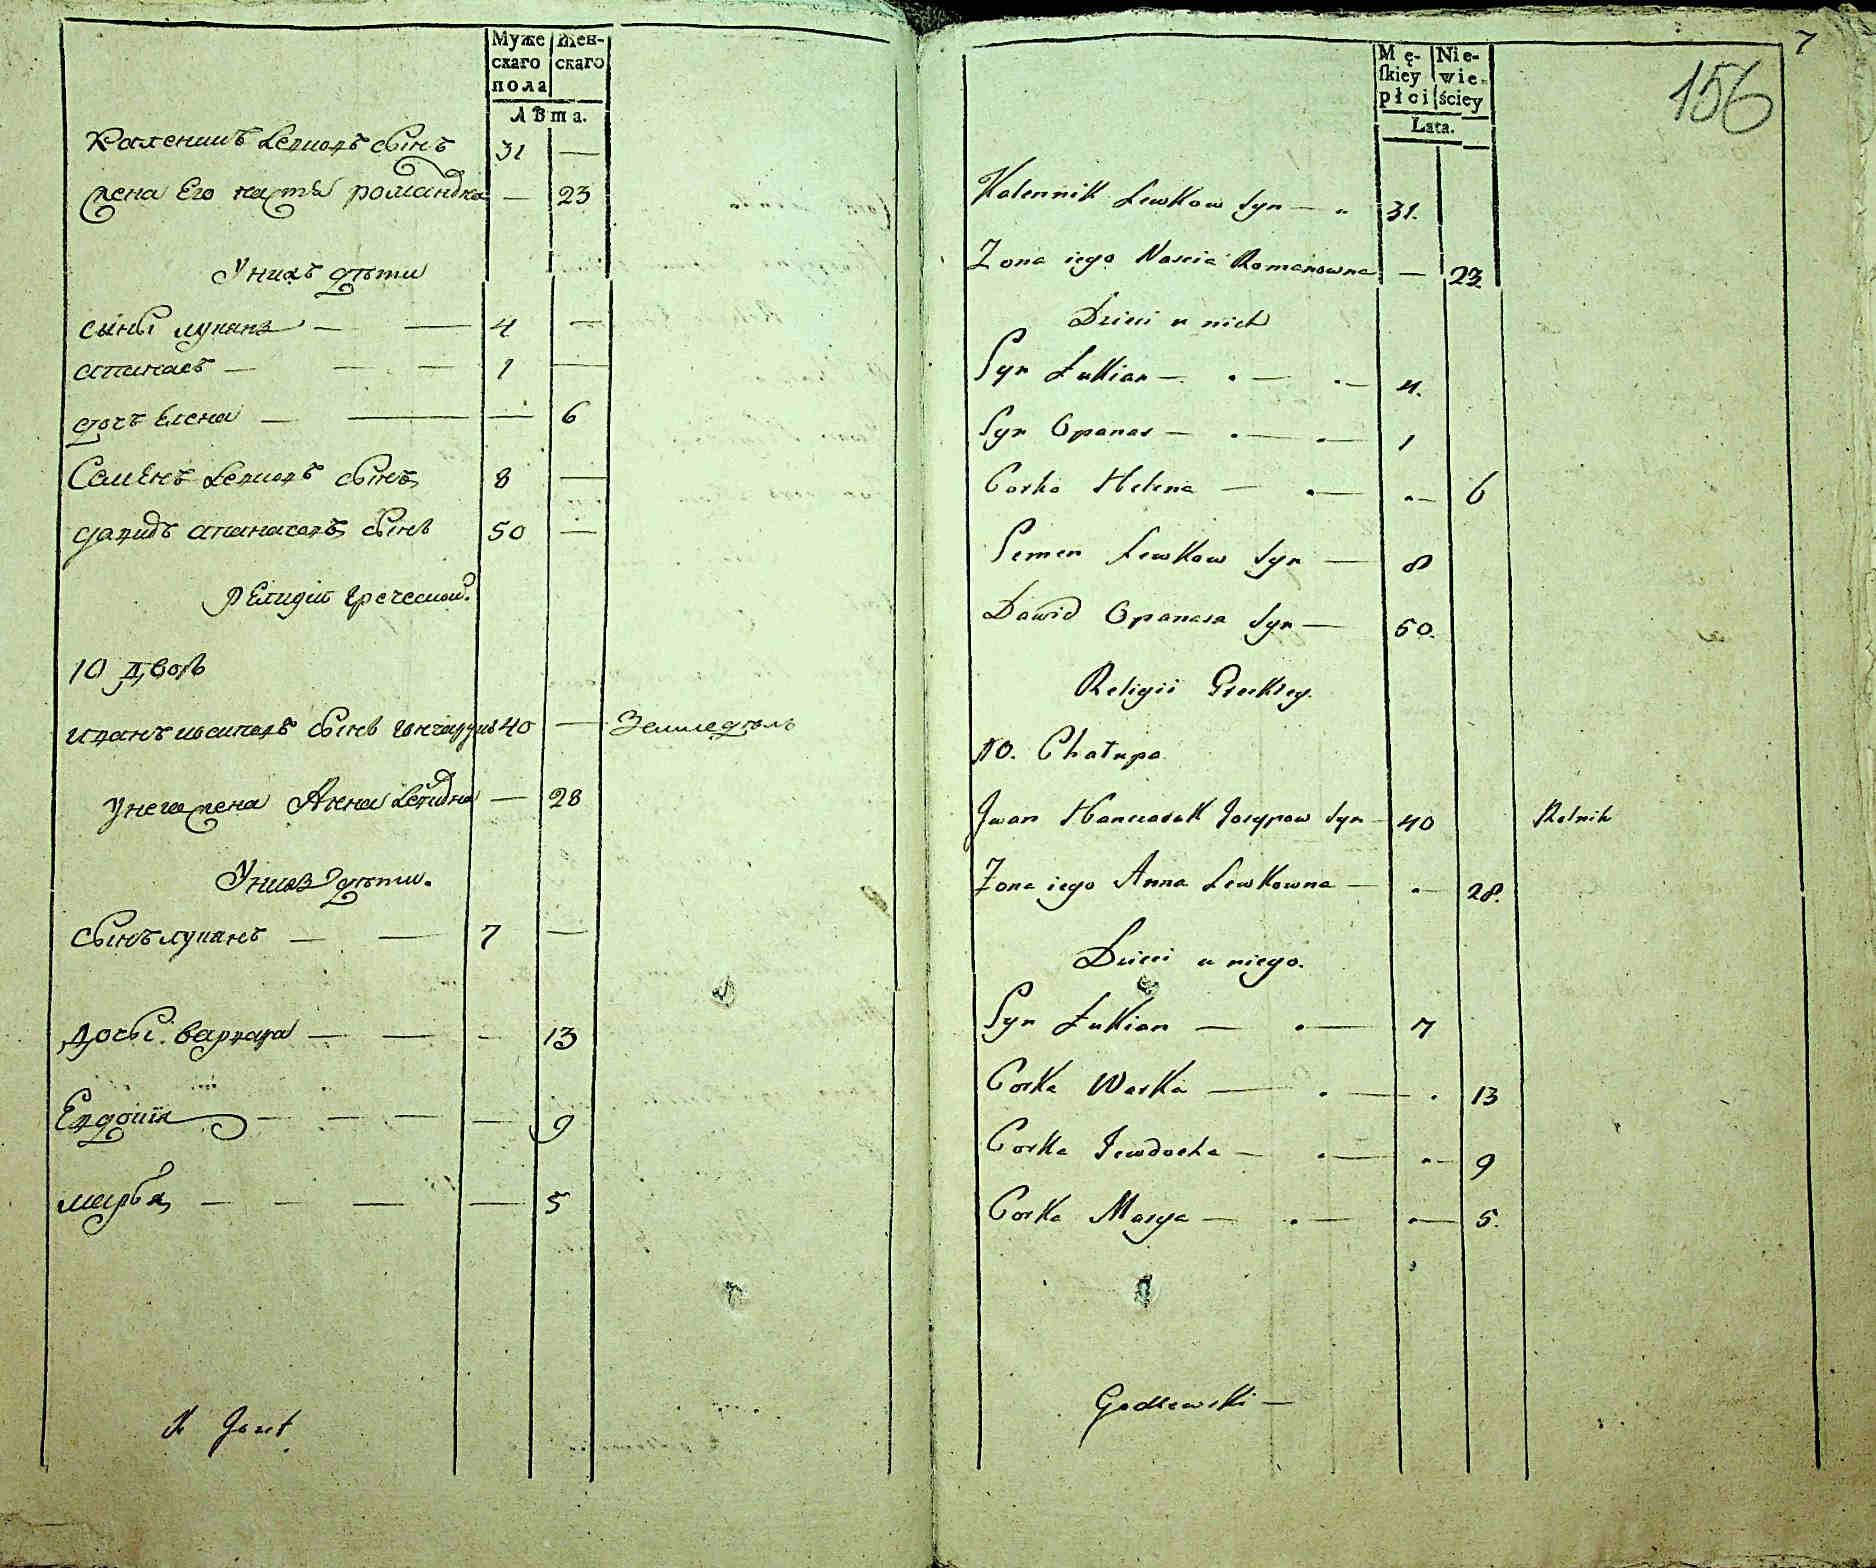 Муже Жен-
скаго скаго
пола
Лѣта.
Каленикъ Левковъ сынъ 31 —
жена Его настя романовна — 23
У нихъ дѣти
сыны лукянъ — — 4 —
апанасъ — — — 1 —
дочь Елена — — — 6
Семенъ Левковъ сынъ 8 —
давидъ апанасовъ сынъ 50 —
Религіи греческой.
10 дворъ
иванъ иосиповъ сынъ гончарукъ 40 — Земледѣль
у него жена Анна Левковна — 28
У нихъ дѣти.
сынъ лукянъ — — 7 —
дочь: варвара — — - 13
Евдокія — — — — 9
марья — — — — 5
Jozef
7
156
Mę- Nie-
ſkiey wie-
płci ściey
Lata.
Kalennik Lewkow Syn — 31.
Zona iego Nascia Romanowna — 23
Dzieci u nich
Syn Łukian — · — · — 4.
Syn Opanas — · — · — 1
Corka Helena — · — · — 6
Semen Lewkow Syn — 8
Dawid Opanasa Syn — 50.
Religii Greckiey.
10. Chałupa
Jwan Hanczaruk Josypow Syn — 40 Rolnik
Zona iego Anna Lewkowna — · — 28.
Dzieci u niego.
Syn Łukian — · — 7
Corka Warka — · — · 13
Corka Jewdocha — · — · — 9
Corka Marya — · — · — 5.
Godlewski —